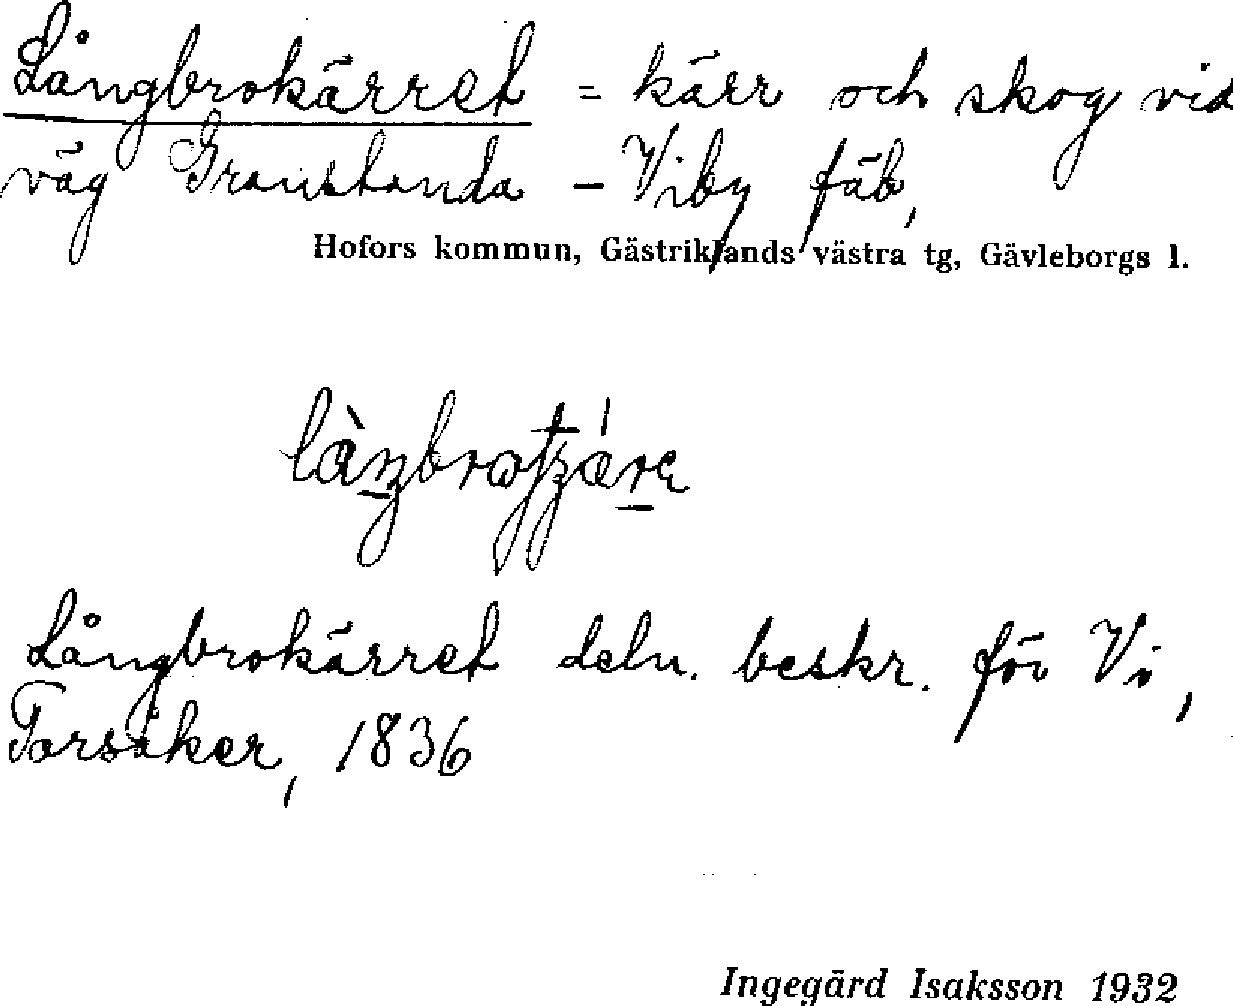 Långbrokärret = kärr och skog vid
väg Granstanda - Viby fäb,
Hofors kommun, Gästriklands västra tg, Gävleborgs l.
Långbrokärret deln. beskr. för Vi,
Torsåker, 1836
Ingegärd Isaksson 1932